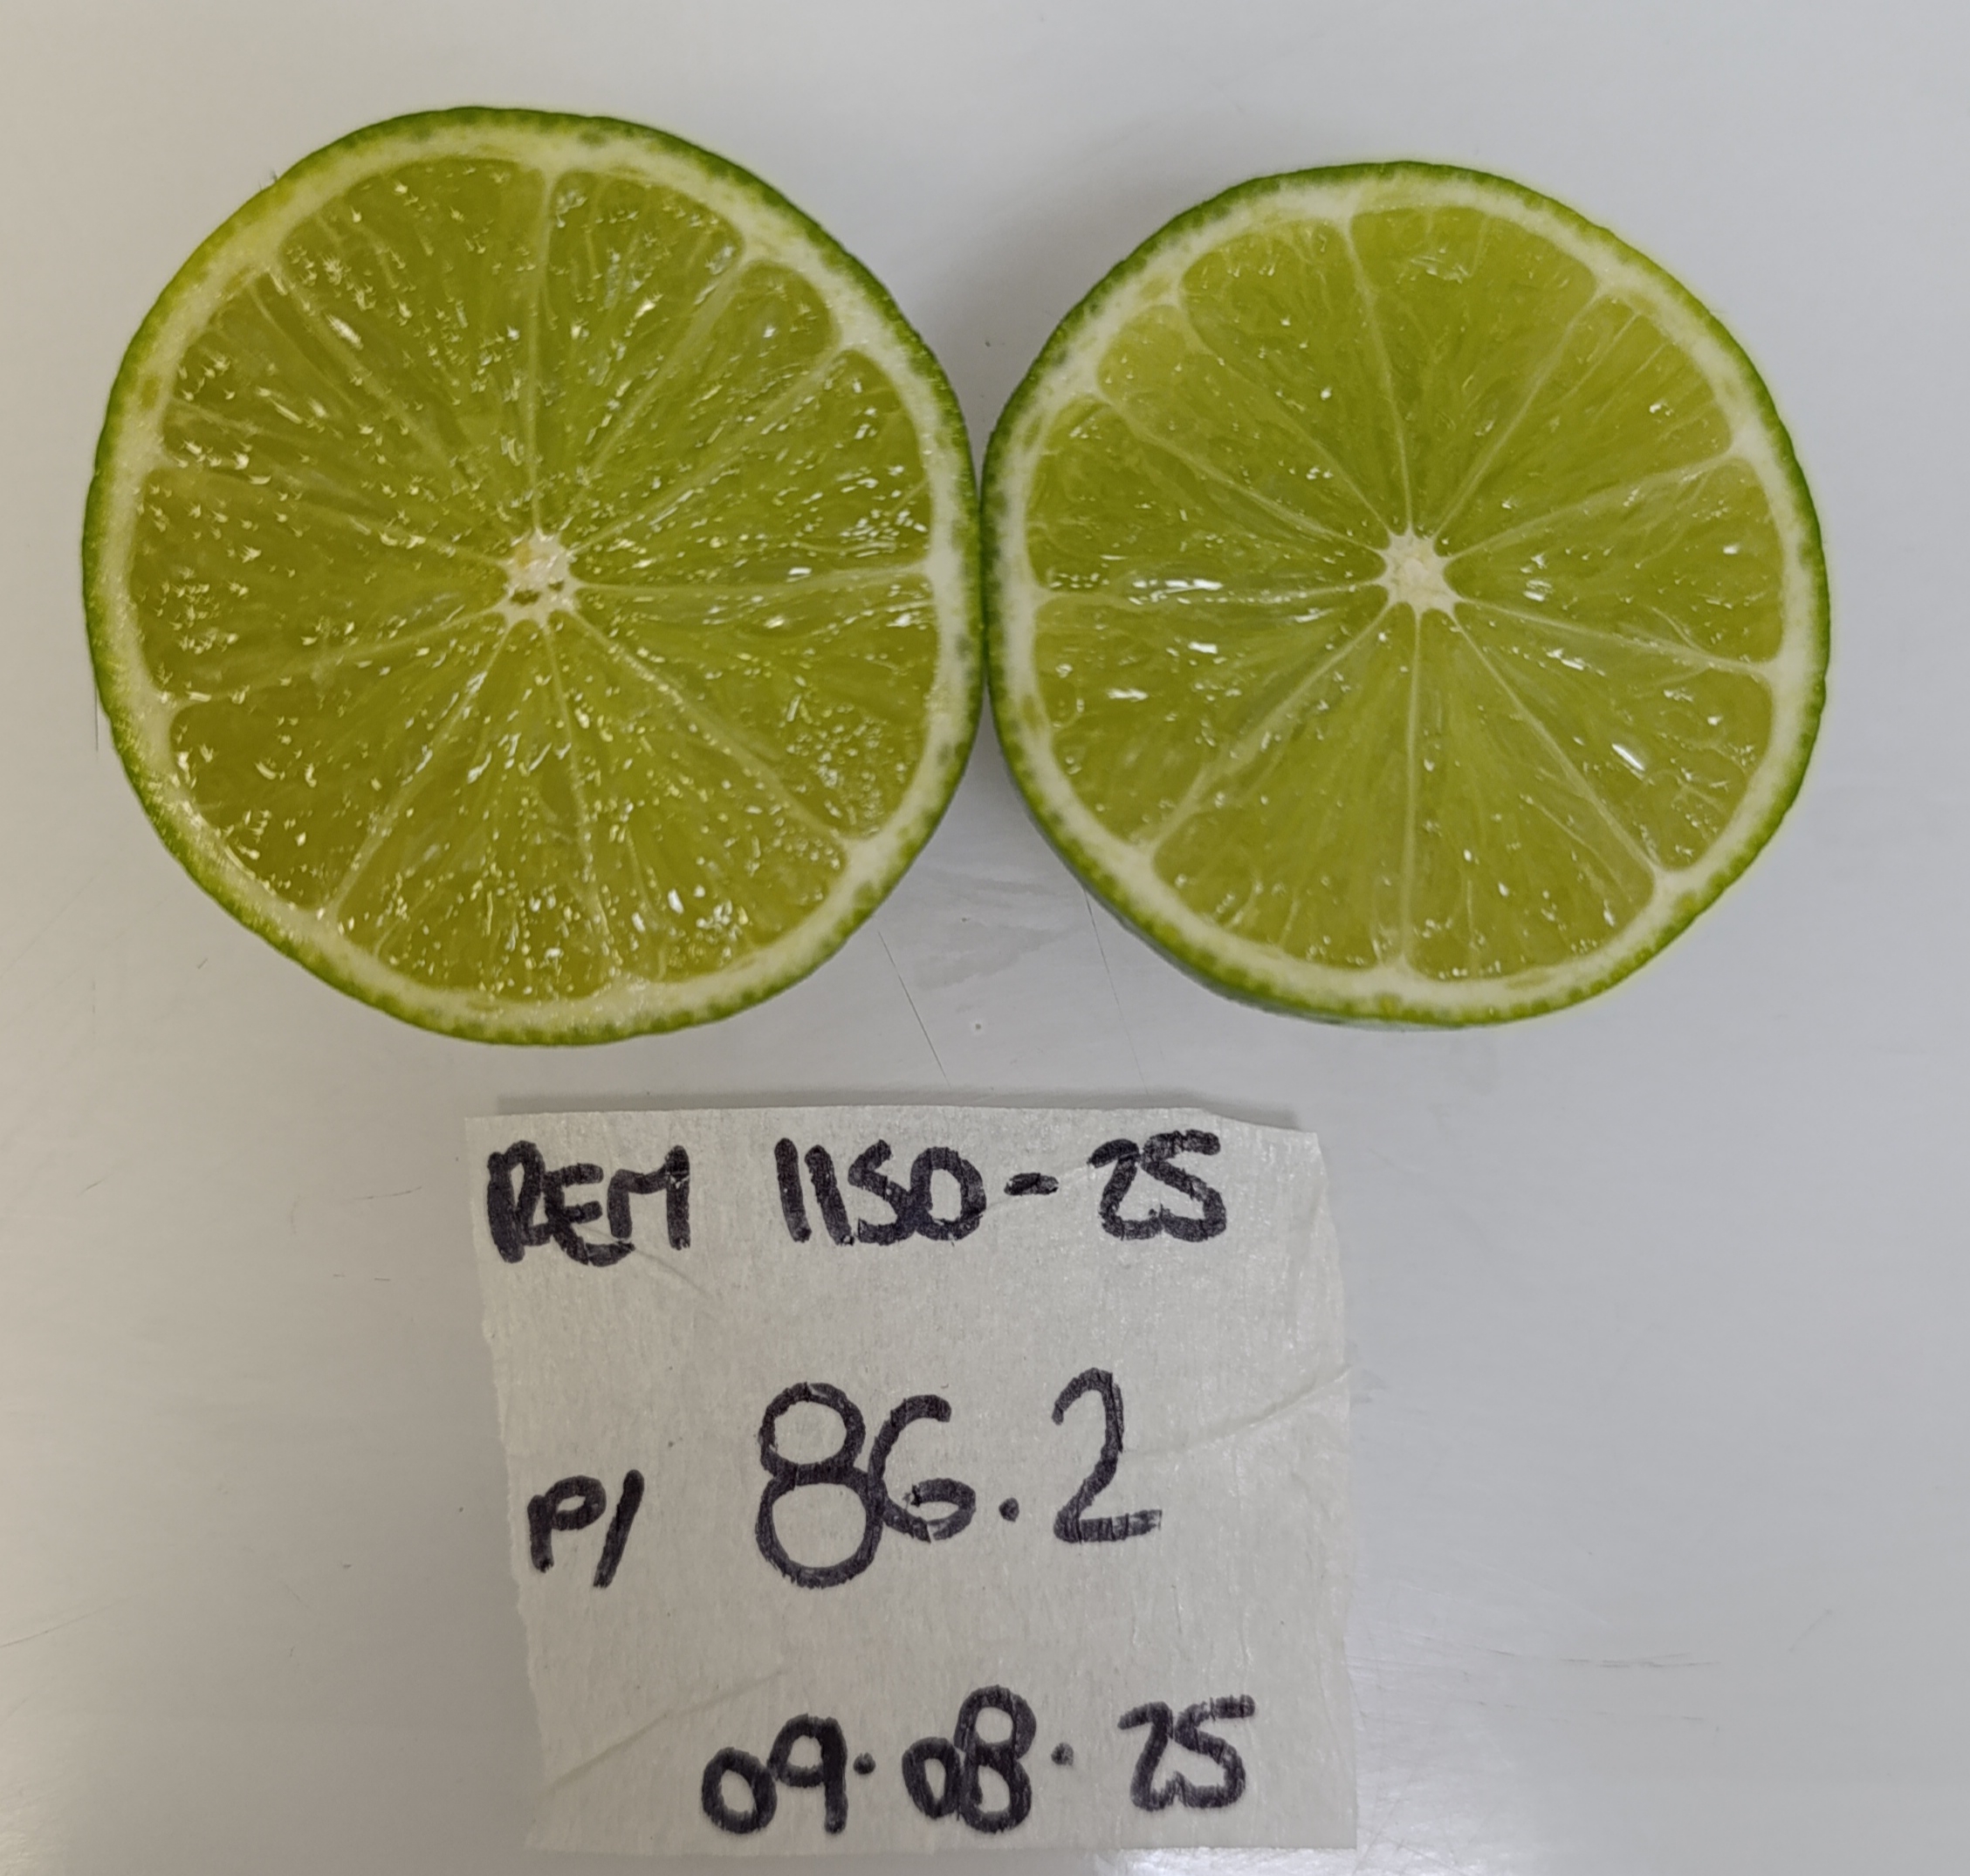 REM 1150-25
P/ 86.2
09.08.25